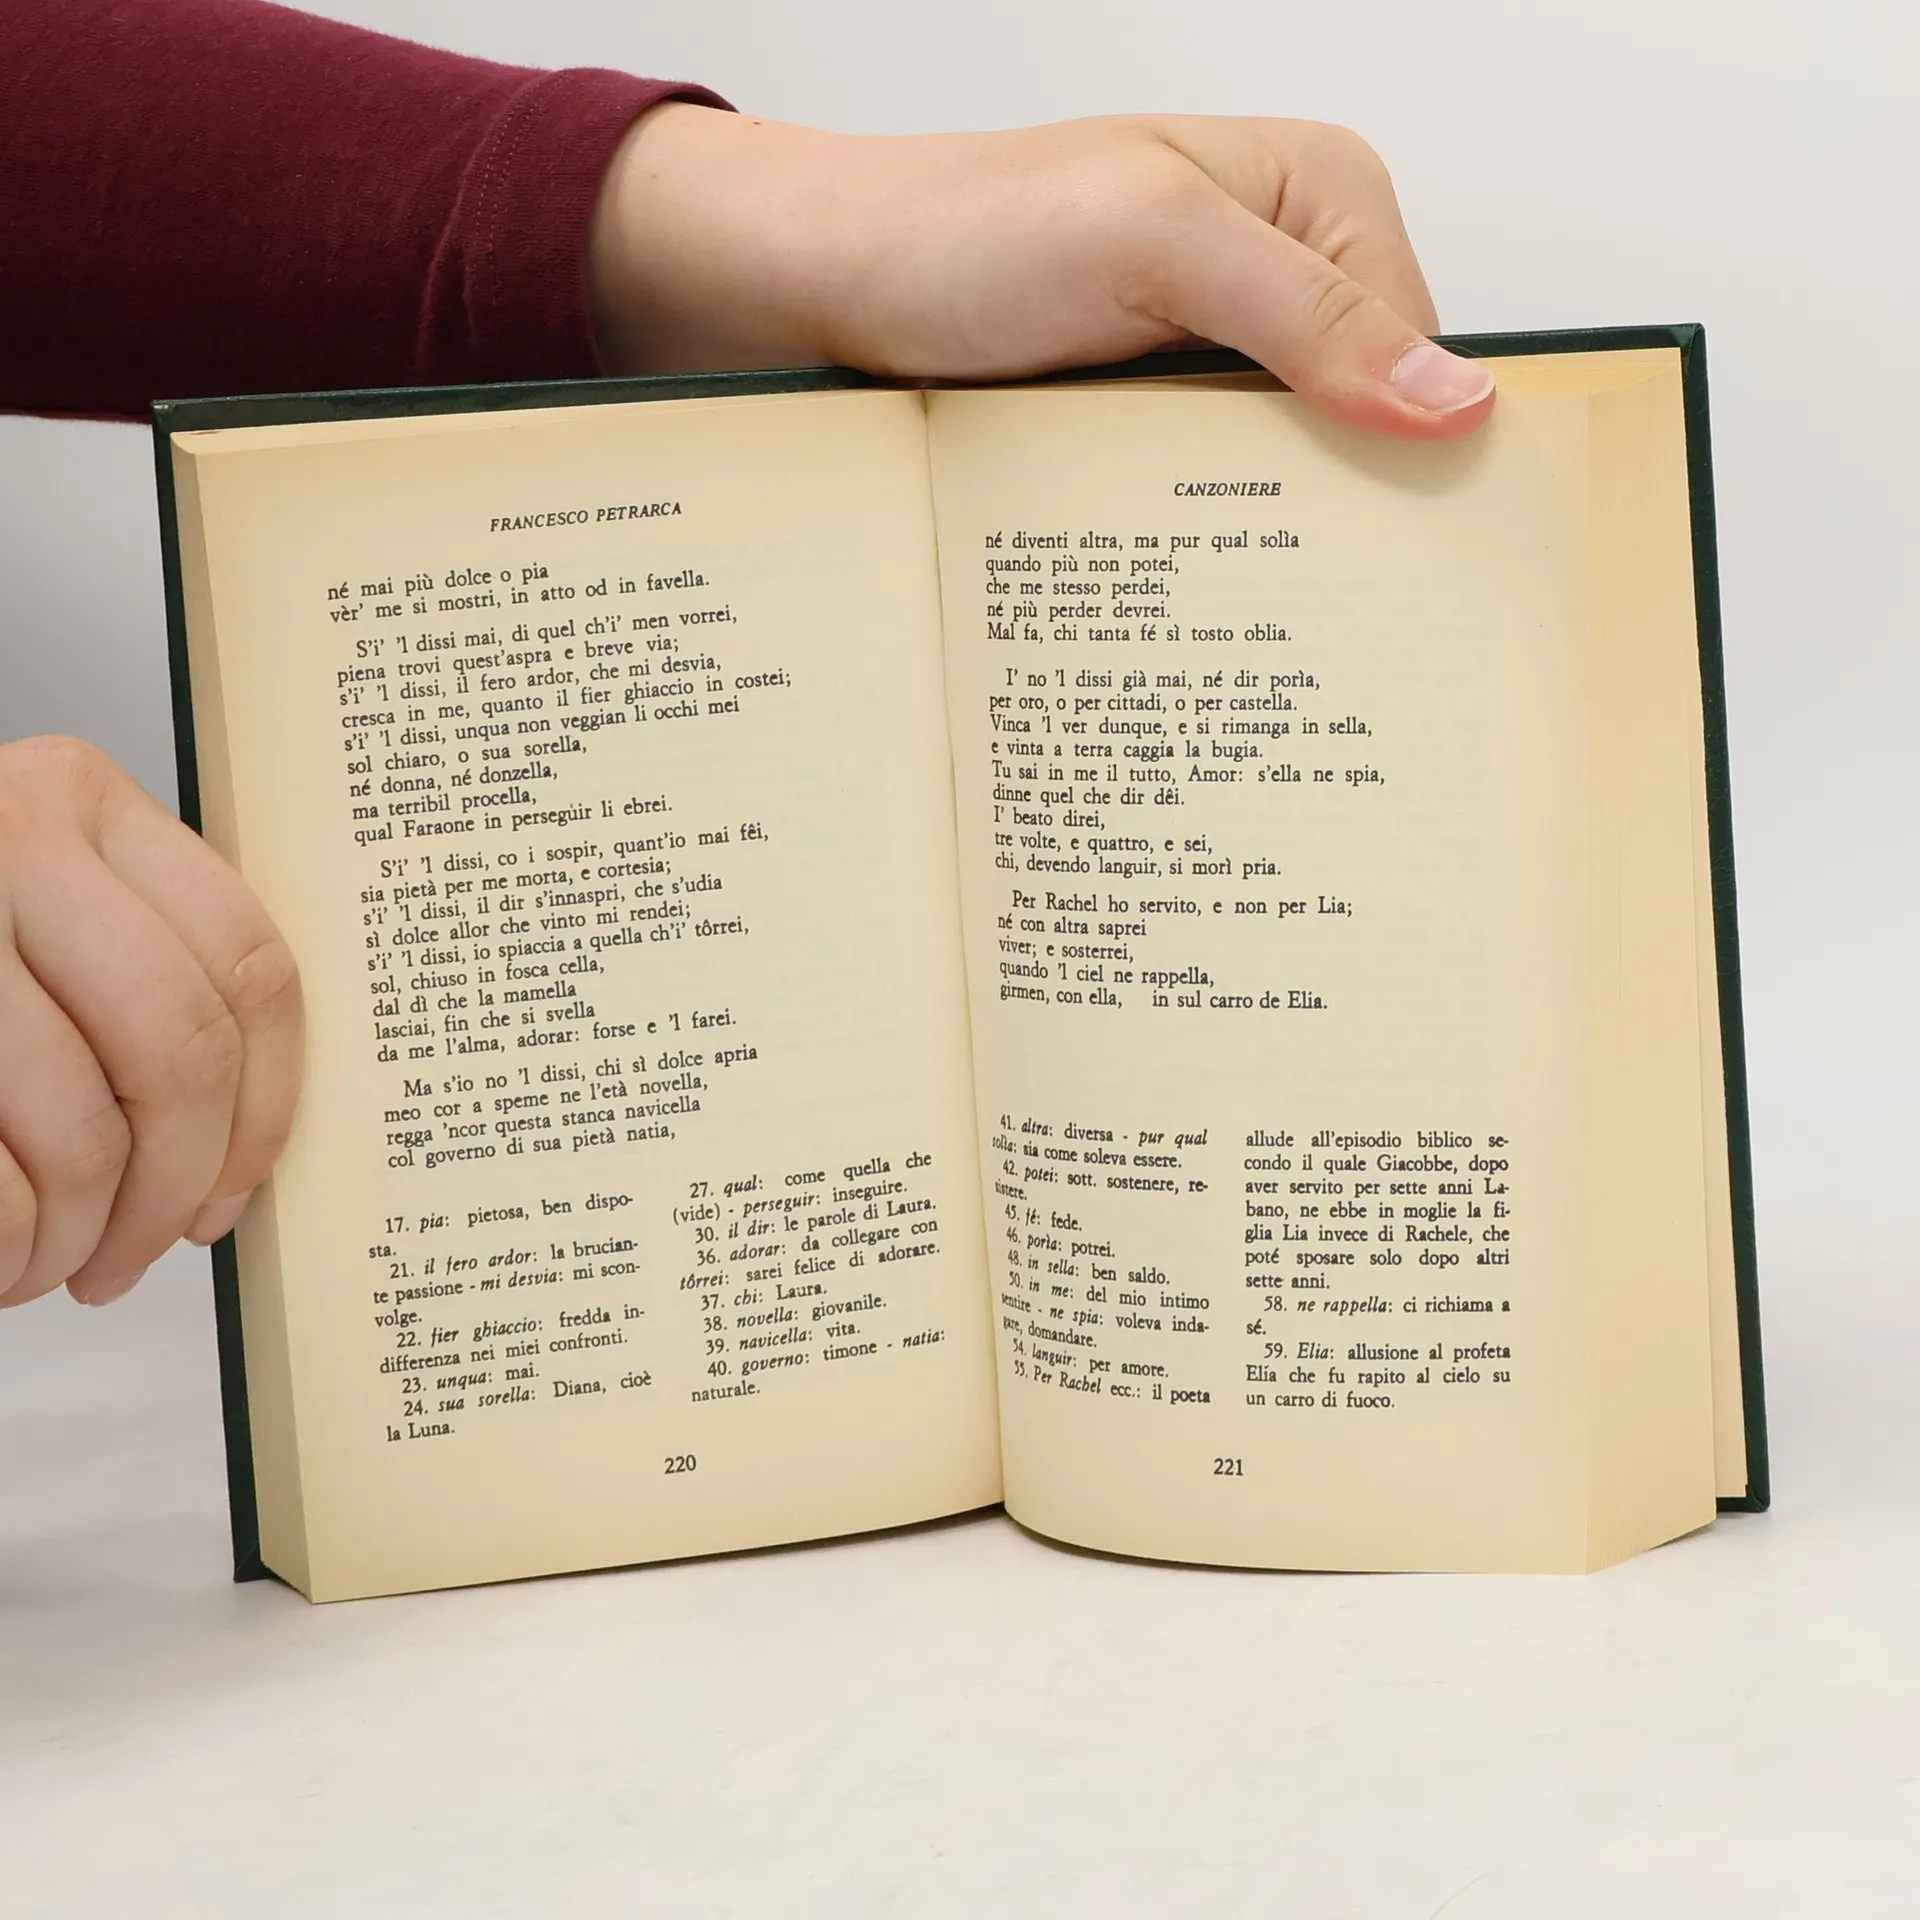 FRANCESCO PETRARCA
né mai più dolce o pia
vèr' me si mostri, in atto od in favella.
S'i' 'l dissi mai, di quel ch'i' men vorrei,
piena trovi quest'aspra e breve via;
s'i' 'l dissi, il fero ardor, che mi desvia,
cresca in me, quanto il fier ghiaccio in costei;
s'i' 'l dissi, unqua non veggian li occhi mei
sol chiaro, o sua sorella,
né donna, né donzella,
ma terribil procella,
qual Faraone in perseguir li ebrei.
S'i' 'l dissi, co i sospir, quant'io mai fêi,
sia pietà per me morta, e cortesia;
s'i' 'l dissi, il dir s'innaspri, che s'udia
sì dolce allor che vinto mi rendei;
s'i' 'l dissi, io spiaccia a quella ch'i' tôrrei,
sol, chiuso in fosca cella,
dal dì che la mamella
lasciai, fin che si svella
da me l'alma, adorar: forse e 'l farei.
Ma s'io no 'l dissi, chi sì dolce apria
meo cor a speme ne l'età novella,
regga 'ncor questa stanca navicella
col governo di sua pietà natia,
17. pia: pietosa, ben dispo-
sta.
21. il fero ardor: la brucian-
te passione - mi desvia: mi scon-
volge.
22. fier ghiaccio: fredda in-
differenza nei miei confronti.
23. unqua: mai.
24. sua sorella: Diana, cioè
la Luna.
27. qual: come quella che
(vide) - perseguir: inseguire.
30. il dir: le parole di Laura.
36. adorar: da collegare con
tôrrei: sarei felice di adorare.
37. chi: Laura.
38. novella: giovanile.
39. navicella: vita.
40. governo: timone - natia:
naturale.
220
CANZONIERE
né diventi altra, ma pur qual solìa
quando più non potei,
che me stesso perdei,
né più perder devrei.
Mal fa, chi tanta fé sì tosto oblia.
I' no 'l dissi già mai, né dir porìa,
per oro, o per cittadi, o per castella.
Vinca 'l ver dunque, e si rimanga in sella,
e vinta a terra caggia la bugia.
Tu sai in me il tutto, Amor: s'ella ne spia,
dinne quel che dir dêi.
I' beato direi,
tre volte, e quattro, e sei,
chi, devendo languir, si morì pria.
Per Rachel ho servito, e non per Lia;
né con altra saprei
viver; e sosterrei,
quando 'l ciel ne rappella,
girmen, con ella, in sul carro de Elia.
41. altra: diversa - pur qual
solìa: sia come soleva essere.
42. potei: sott. sostenere, re-
sistere.
45. fé: fede.
46. porìa: potrei.
48. in sella: ben saldo.
50. in me: del mio intimo
sentire - ne spia: voleva inda-
gare, domandare.
54. languir: per amore.
55. Per Rachel ecc.: il poeta
allude all'episodio biblico se-
condo il quale Giacobbe, dopo
aver servito per sette anni La-
bano, ne ebbe in moglie la fi-
glia Lia invece di Rachele, che
poté sposare solo dopo altri
sette anni.
58. ne rappella: ci richiama a
sé.
59. Elia: allusione al profeta
Elía che fu rapito al cielo su
un carro di fuoco.
221